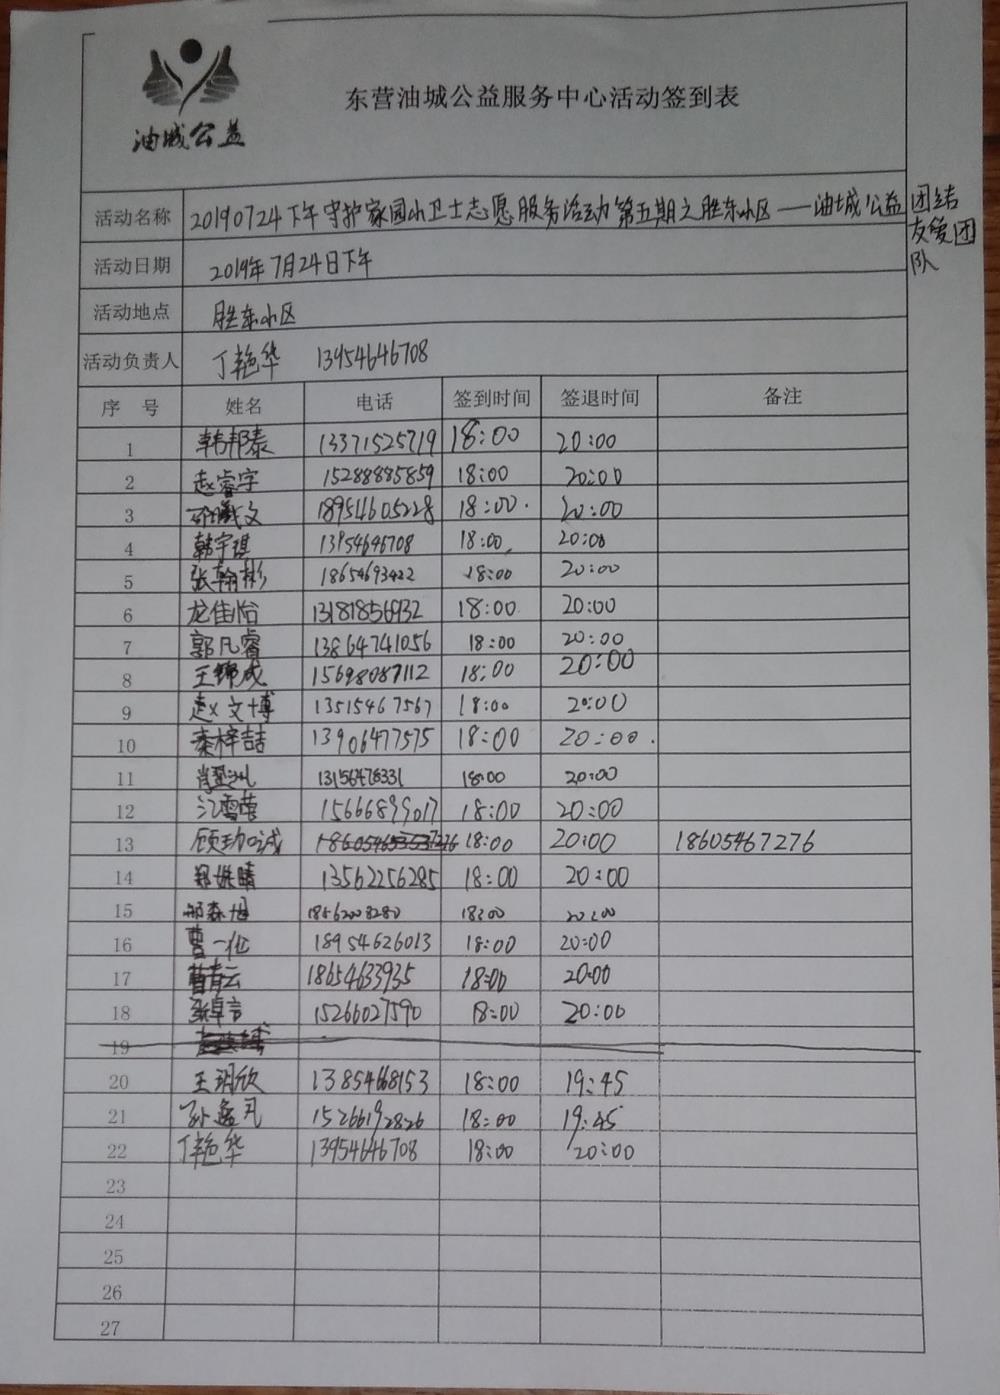 油城公益
东营油城公益服务中心活动签到表
活动名称 20190724下午守护家园小卫士志愿服务活动第五期之胜东小区——油城公益团结
友爱团
队
活动日期 2019年7月24日下午
活动地点 胜东小区
活动负责人 丁艳华 13954646708
序 号 姓名 电话 签到时间 签退时间 备注
1 韩邦泰 13371525719 18:00 20:00
2 赵睿宇 15288885859 18:00 20:00
3 文 18954605228 18:00. 20:00
4 韩宇琪 13954646708 18:00 20:00
5 张翰彬 18654693422 18:00 20:00
6 龙佳怡 13181856932 18:00 20:00
7 郭凡睿 13864741056 18:00 20:00
8 王锦成 15698087112 18:00 20:00
9 赵文博 13515467567 18:00 20:00
10 秦梓喆 13906477575 18:00 20:00.
11 肖 13156478331 18:00 20:00
12 江雪莹 15666899017 18:00 20:00
13 顾 诚 18:00 20:00 18605467276
14 郑 晴 13562256285 18:00 20:00
15 18562008280 18:00 20:00
16 曹一 18954626013 18:00 20:00
17 曹青云 18654633935 18:00 20:00
18 张卓言 15266027590 18:00 20:00
19
20 王玥欣 13854668153 18:00 19:45
21 孙 15266192826 18:00 19:45
22 丁艳华 13954646708 18:00 20:00
23
24
25
26
27